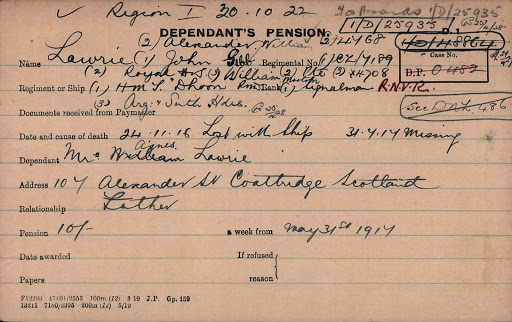 ✓ Region I 20.10.22 To Awards 1/D/25935
1/D/25935
DEPENDANT'S PENSION. D.1
(2) Alexander William 3/4468 1D/4886
Name Lawrie (1) John Gibb Regimental No. Case No.
(2) Royal H.S (3) William Morton (2) Pte (3) D.P.
Regiment or Ship (1) H.M.S. "Dhoon" Rank (1) Signalman R.N.V.R.
(3) Arg: & Suth Hdrs. See D.A.L. 486
Documents received from Paymaster
Date and cause of death 24.11.16 Lost with Ship 31.7.17 Missing
Agnes
Dependant Mrs William Lawrie
Address 107 Alexander St Coatbridge Scotland
Relationship Father
Pension 10/- a week from May 31st 1917
Date awarded If refused
Papers reason
100m (12) 3 19 J.P. Gp. 159
13211 7160/2395 200m (12) 5/19